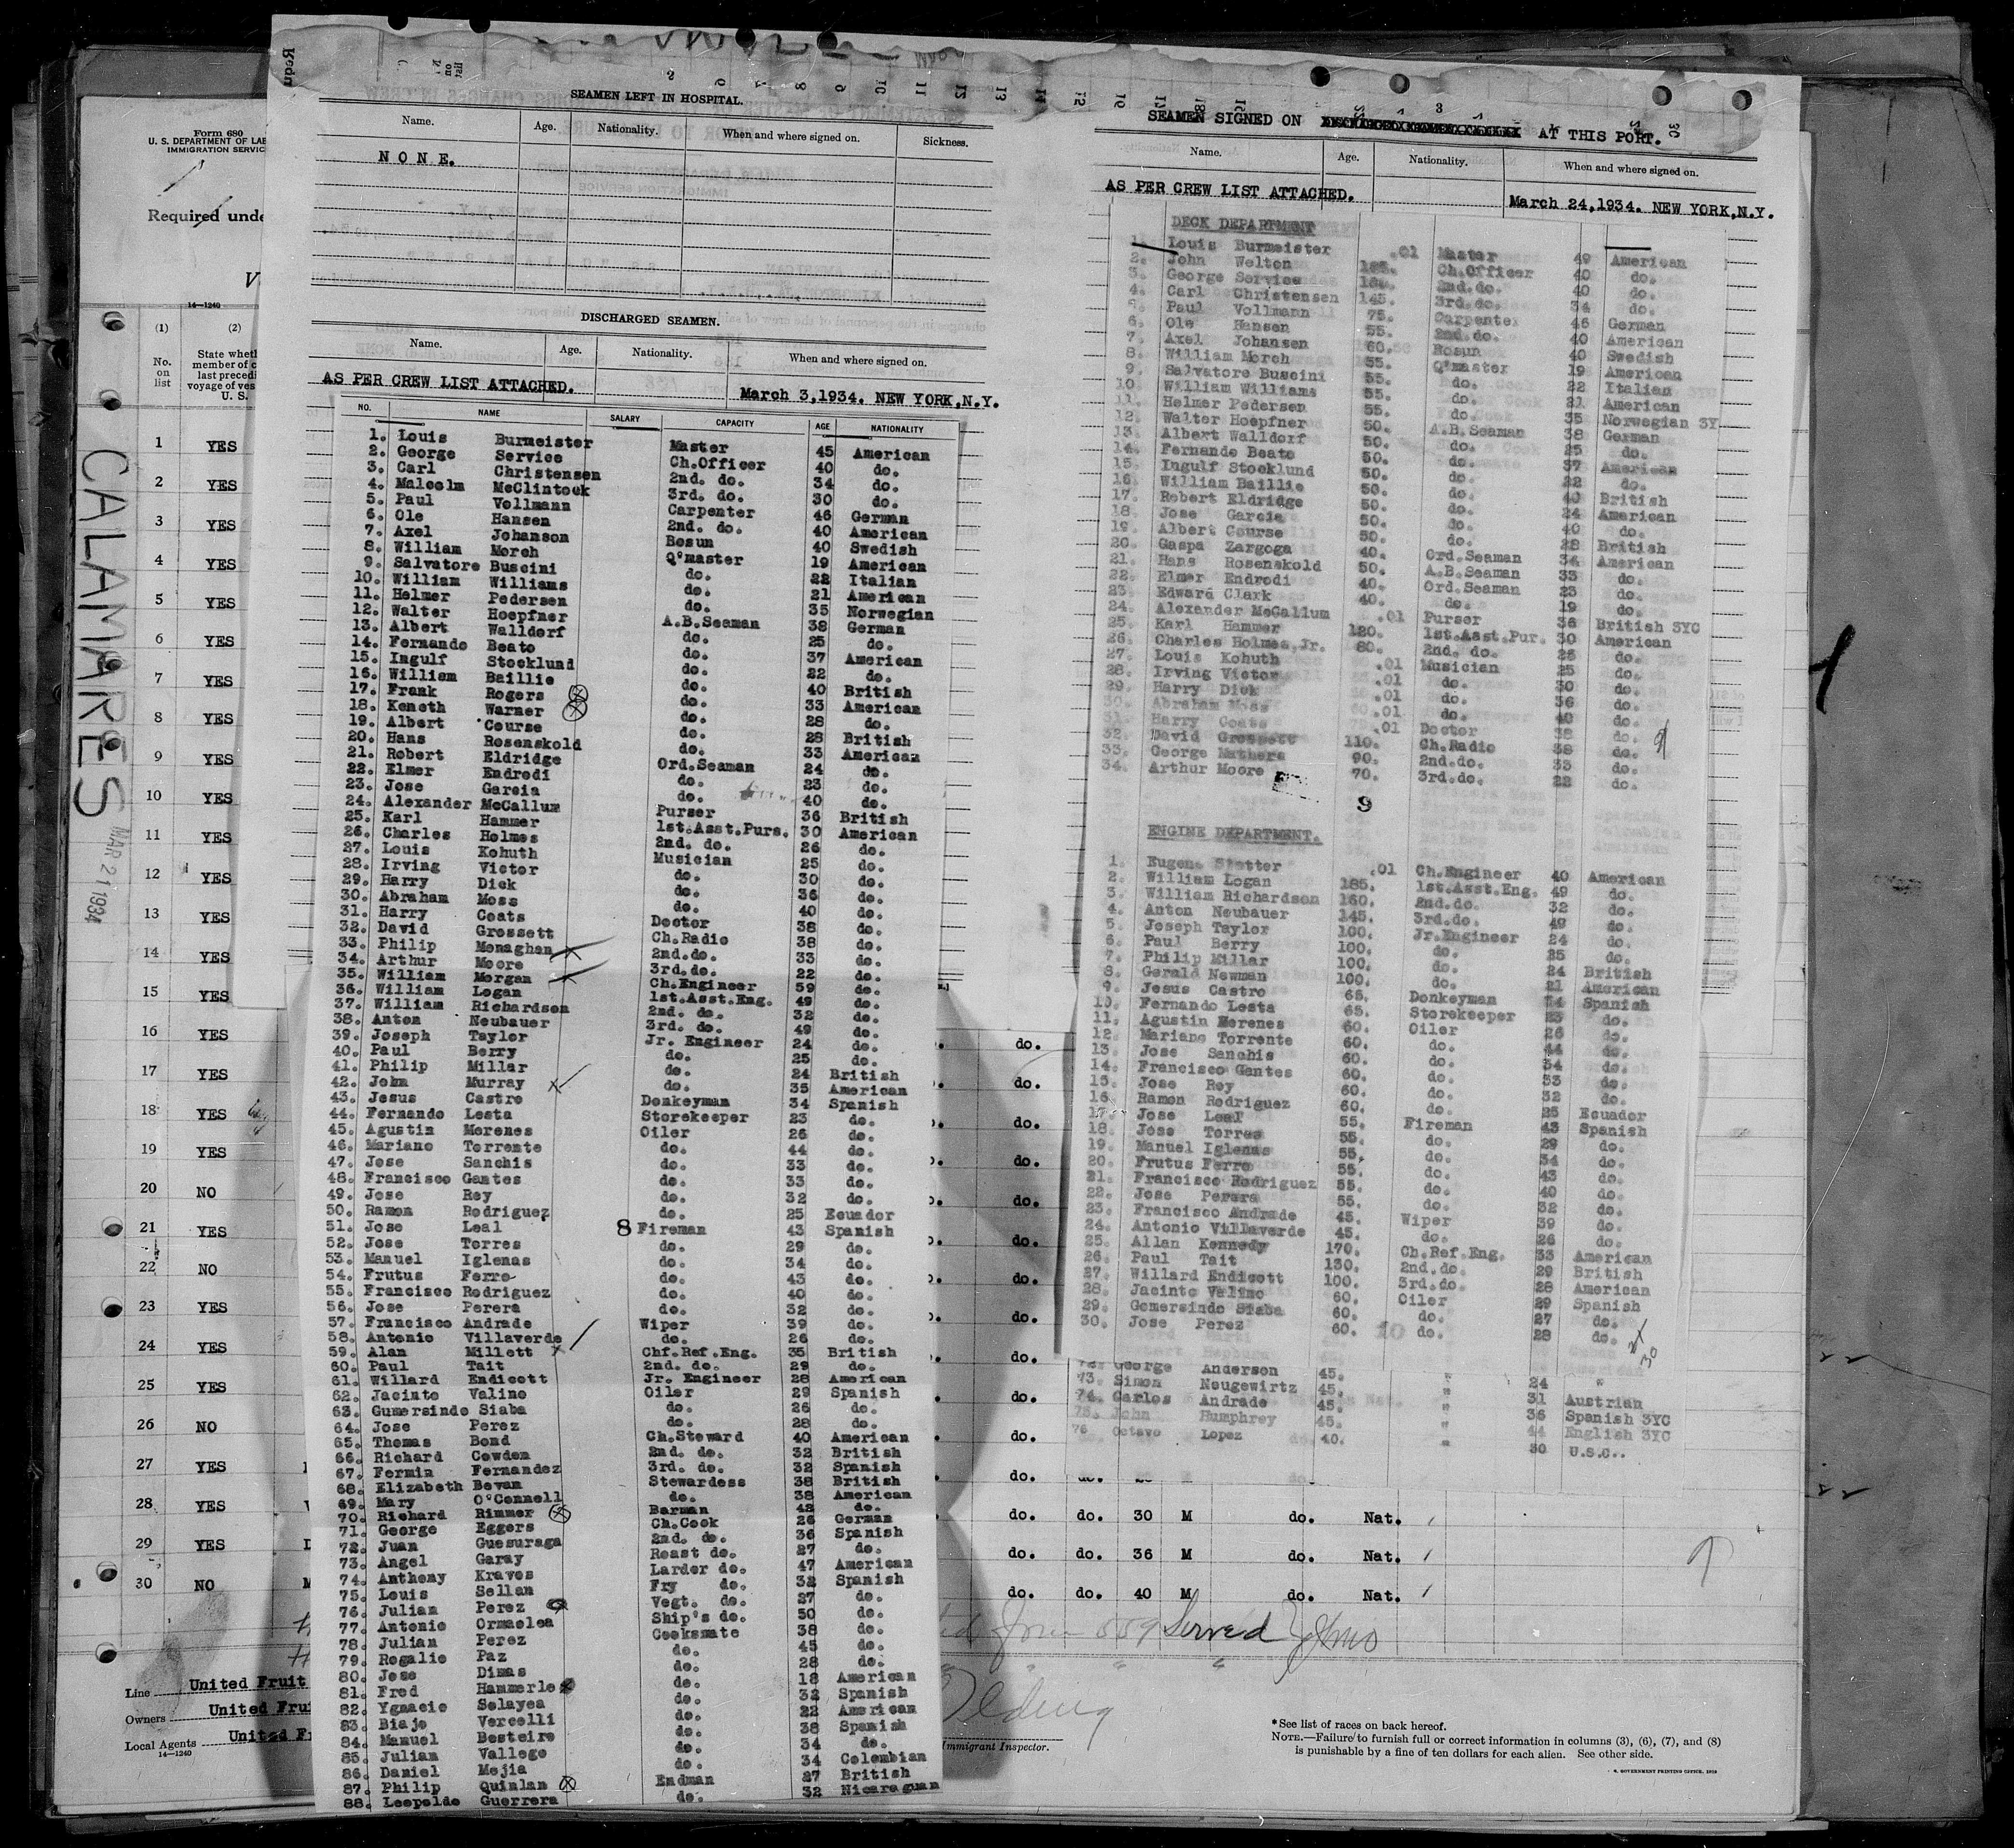 Form 680
U. S. DEPARTMENT OF LAB
IMMIGRATION SERVIC
Required unde
14—1240
(1) (2)
No. on list
State wheth
member of c
last precedi
voyage of ves
U. S.
1 YES
2 YES
3 YES
4 YES
5 YES
6 YES
7 YES
8 YES
9 YES
10 YES
11 YES
12 YES
13 YES
14 YES
15 YES
16 YES
17 YES
18 YES
19 YES
20 NO
21 YES
22 NO
23 YES
24 YES
25 YES
26 NO
27 YES
28 YES
29 YES
30 NO
CALAMARES
MAR 21 1934
Line United Fruit
Owners United Frui
Local Agents United Fr
14—1240
SEAMEN LEFT IN HOSPITAL.
Name. Age. Nationality. When and where signed on. Sickness.
N O N E.
DISCHARGED SEAMEN.
Name. Age. Nationality. When and where signed on.
AS PER CREW LIST ATTACHED. March 3,1934. NEW YORK,N.Y.
NO. NAME SALARY CAPACITY AGE NATIONALITY
1. Louis Burmeister Master 45 American
2. George Service Ch.Officer 40 do.
3. Carl Christensen 2nd. do. 34 do.
4. Malcolm McClintock 3rd. do. 30 do.
5. Paul Vollmann Carpenter 46 German
6. Ole Hansen 2nd. do. 40 American
7. Axel Johanson Bosun 40 Swedish
8. William Morch Q'master 19 American
9. Salvatore Buscini do. 22 Italian
10. William Williams do. 21 American
11. Helmer Pedersen do. 35 Norwegian
12. Walter Hoepfner A.B.Seaman 38 German
13. Albert Walldorf do. 25 do.
14. Fernando Beato do. 37 American
15. Ingulf Stocklund do. 22 do.
16. William Baillie do. 40 British
17. Frank Rogers do. 33 American
18. Keneth Warner do. 28 do.
19. Albert Course do. 28 British
20. Hans Rosenskold do. 33 American
21. Robert Eldridge Ord.Seaman 24 do.
22. Elmer Endrodi do. 23 do.
23. Jose Garcia do. 40 do.
24. Alexander McCallum Purser 36 British
25. Karl Hammer 1st.Asst.Purs. 30 American
26. Charles Holmes 2nd. do. 26 do.
27. Louis Kohuth Musician 25 do.
28. Irving Victor do. 30 do.
29. Harry Dick do. 36 do.
30. Abraham Moss do. 40 do.
31. Harry Coats Doctor 38 do.
32. David Grossett Ch.Radio 38 do.
33. Philip Monaghan 2nd.do. 33 do.
34. Arthur Moore 3rd.do. 22 do.
35. William Morgan Ch.Engineer 59 do.
36. William Logan 1st.Asst.Eng. 49 do.
37. William Richardson 2nd. do. 32 do.
38. Anton Neubauer 3rd. do. 49 do.
39. Joseph Taylor Jr. Engineer 24 do.
40. Paul Berry do. 25 do.
41. Philip Millar do. 24 British
42. John Murray do. 35 American
43. Jesus Castro Donkeyman 34 Spanish
44. Fernando Lesta Storekeeper 23 do.
45. Agustin Merenes Oiler 26 do.
46. Mariano Torrente do. 44 do.
47. Jose Sanchis do. 33 do.
48. Francisco Gantes do. 33 do.
49. Jose Rey do. 32 do.
50. Ramon Rodriguez do. 25 Ecuador
51. Jose Leal 8 Fireman 43 Spanish
52. Jose Torres do. 29 do.
53. Manuel Iglenas do. 34 do.
54. Frutus Ferro do. 43 do.
55. Francisco Rodriguez do. 40 do.
56. Jose Perera do. 32 do.
57. Francisco Andrade Wiper 39 do.
58. Antonio Villaverde do. 26 do.
59. Alan Millett Chf.Ref.Eng. 35 British
60. Paul Tait 2nd. do. 29 do.
61. Willard Endicott Jr. Engineer 28 American
62. Jacinto Valino Oiler 29 Spanish
63. Gumersindo Siaba do. 26 do.
64. Jose Perez do. 28 do.
65. Thomas Bond Ch.Steward 40 American
66. Richard Cowden 2nd. do. 32 British
67. Fermin Fernandez 3rd. do. 32 Spanish
68. Elizabeth Bevan Stewardess 38 British
69. Mary O'Connell do. 38 American
70. Richard Rimmer Barman 42 do.
71. George Eggers Ch.Cook 26 German
72. Juan Guesuraga 2nd. do. 36 Spanish
73. Angel Garay Roast do. 27 do.
74. Anthony Kraves Larder do. 47 American
75. Louis Sellan Fry do. 32 Spanish
76. Julian Perez Vegt. do. 27 do.
77. Antonio Ormaolea Ship's do. 50 do.
78. Julian Perez Cooksmate 38 do.
79. Rogalio Paz do. 45 do.
80. Jose Dimas do. 28 do.
81. Fred Hammerle do. 18 American
82. Ygnacio Selayea do. 32 Spanish
83. Biajo Vercelli do. 22 American
84. Manuel Besteiro do. 38 Spanish
85. Julian Vallego do. 34 do.
86. Daniel Mejia do. 34 Colombian
87. Philip Quinlan Endman 27 British
88. Leopoldo Guerrera do. 32 Nicaraguan
SEAMEN SIGNED ON AT THIS PORT.
Name. Age. Nationality. When and where signed on.
AS PER CREW LIST ATTACHED. March 24,1934. NEW YORK,N.Y.
DECK DEPARTMENT
1. Louis Burmeister .01 Master 49 American
2. John Welton 185. Ch.Officer 40 do.
3. George Service 2nd.do. 40 do.
4. Carl Christensen 145. 3rd.do. 34 do.
5. Paul Vollmann 75. Carpenter 46 German
6. Ole Hansen 55. 2nd.do. 40 American
7. Axel Johansen 60. Bosun 40 Swedish
8. William Morch 55. Q'master 19 American
9. Salvatore Buscini 55. do. 22 Italian
10. William Williams 55. do. 21 American
11. Helmer Pedersen 55. do. 35 Norwegian 3Y
12. Walter Hoepfner 50. A.B.Seaman 38 German
13. Albert Walldorf 50. do. 25 do.
14. Fernando Beato 50. do. 37 American
15. Ingulf Stocklund 50. do. 22 do.
16. William Baillie 50. do. 40 British
17. Robert Eldridge 50. do. 24 American
18. Jose Garcia 50. do. 40 do.
19. Albert Course 50. do. 28 British
20. Gaspa Zargoga 40. Ord.Seaman 34 American
21. Hans Rosenskold 50. A.B.Seaman 33 do.
22. Elmer Endrodi 40. Ord.Seaman 23 do.
23. Edward Clark 40. do. 19 do.
24. Alexander McCallum .01 Purser 36 British 3YC
25. Karl Hammer 120. 1st.Asst.Pur. 30 American
26. Charles Holmes,Jr. 80. 2nd. do. 26 do.
27. Louis Kohuth .01 Musician 25 do.
28. Irving Victor .01 do. 30 do.
29. Harry Dick .01 do. 36 do.
30. Abraham Moss .01 do. 40 do.
31. Harry Coats .01 Doctor 38 do.
32. David Grossett 110. Ch.Radio 38 do.
33. George Mathers 90. 2nd.do. 33 do.
34. Arthur Moore 70. 3rd.do. 22 do.
9
ENGINE DEPARTMENT.
1. Eugene Stetter .01 Ch.Engineer 40 American
2. William Logan 185. 1st.Asst.Eng. 49 do.
3. William Richardson 160. 2nd.do. 32 do.
4. Anton Neubauer 145. 3rd.do. 49 do.
5. Joseph Taylor 100. Jr.Engineer 24 do.
6. Paul Berry 100. do. 25 do.
7. Philip Millar 100. do. 24 British
8. Gerald Newman 100. do. 21 American
9. Jesus Castro 65. Donkeyman 34 Spanish
10. Fernando Lesta 65. Storekeeper 23 do.
11. Agustin Merenes 60. Oiler 26 do.
12. Mariano Torrente 60. do. 44 do.
13. Jose Sanchis 60. do. 34 do.
14. Francisco Gantes 60. do. 33 do.
15. Jose Rey 60. do. 32 do.
16. Ramon Rodriguez 60. do. 25 Ecuador
17. Jose Leal 55. Fireman 43 Spanish
18. Jose Torres 55. do. 29 do.
19. Manuel Iglenas 55. do. 34 do.
20. Frutus Ferro 55. do. 43 do.
21. Francisco Rodriguez 55. do. 40 do.
22. Jose Perera 55. do. 32 do.
23. Francisco Andrade 45. Wiper 39 do.
24. Antonio Villaverde 45. do. 26 do.
25. Allan Kennedy 170. Ch.Ref.Eng. 33 American
26. Paul Tait 130. 2nd.do. 29 British
27. Willard Endicott 100. 3rd.do. 28 American
28. Jacinto Valino 60. Oiler 29 Spanish
29. Gomersindo Siaba 60. do. 27 do.
30. Jose Perez 60. do. 28 do.
10
30
72. George Anderson 45. " 24 "
73. Simon Neugewirtz 45. " 31 Austrian
74. Carlos Andrade 45. " 36 Spanish 3YC
75. John Humphrey 45. " 44 English 3YC
76 Octavo Lopez 40. " 30 U.S.C..
do. do. 30 M do. Nat.
do. do. 36 M do. Nat.
do. do. 40 M do. Nat.
Served
Immigrant Inspector.
*See list of races on back hereof.
NOTE.—Failure to furnish full or correct information in columns (3), (6), (7), and (8)
is punishable by a fine of ten dollars for each alien. See other side.
GOVERNMENT PRINTING OFFICE